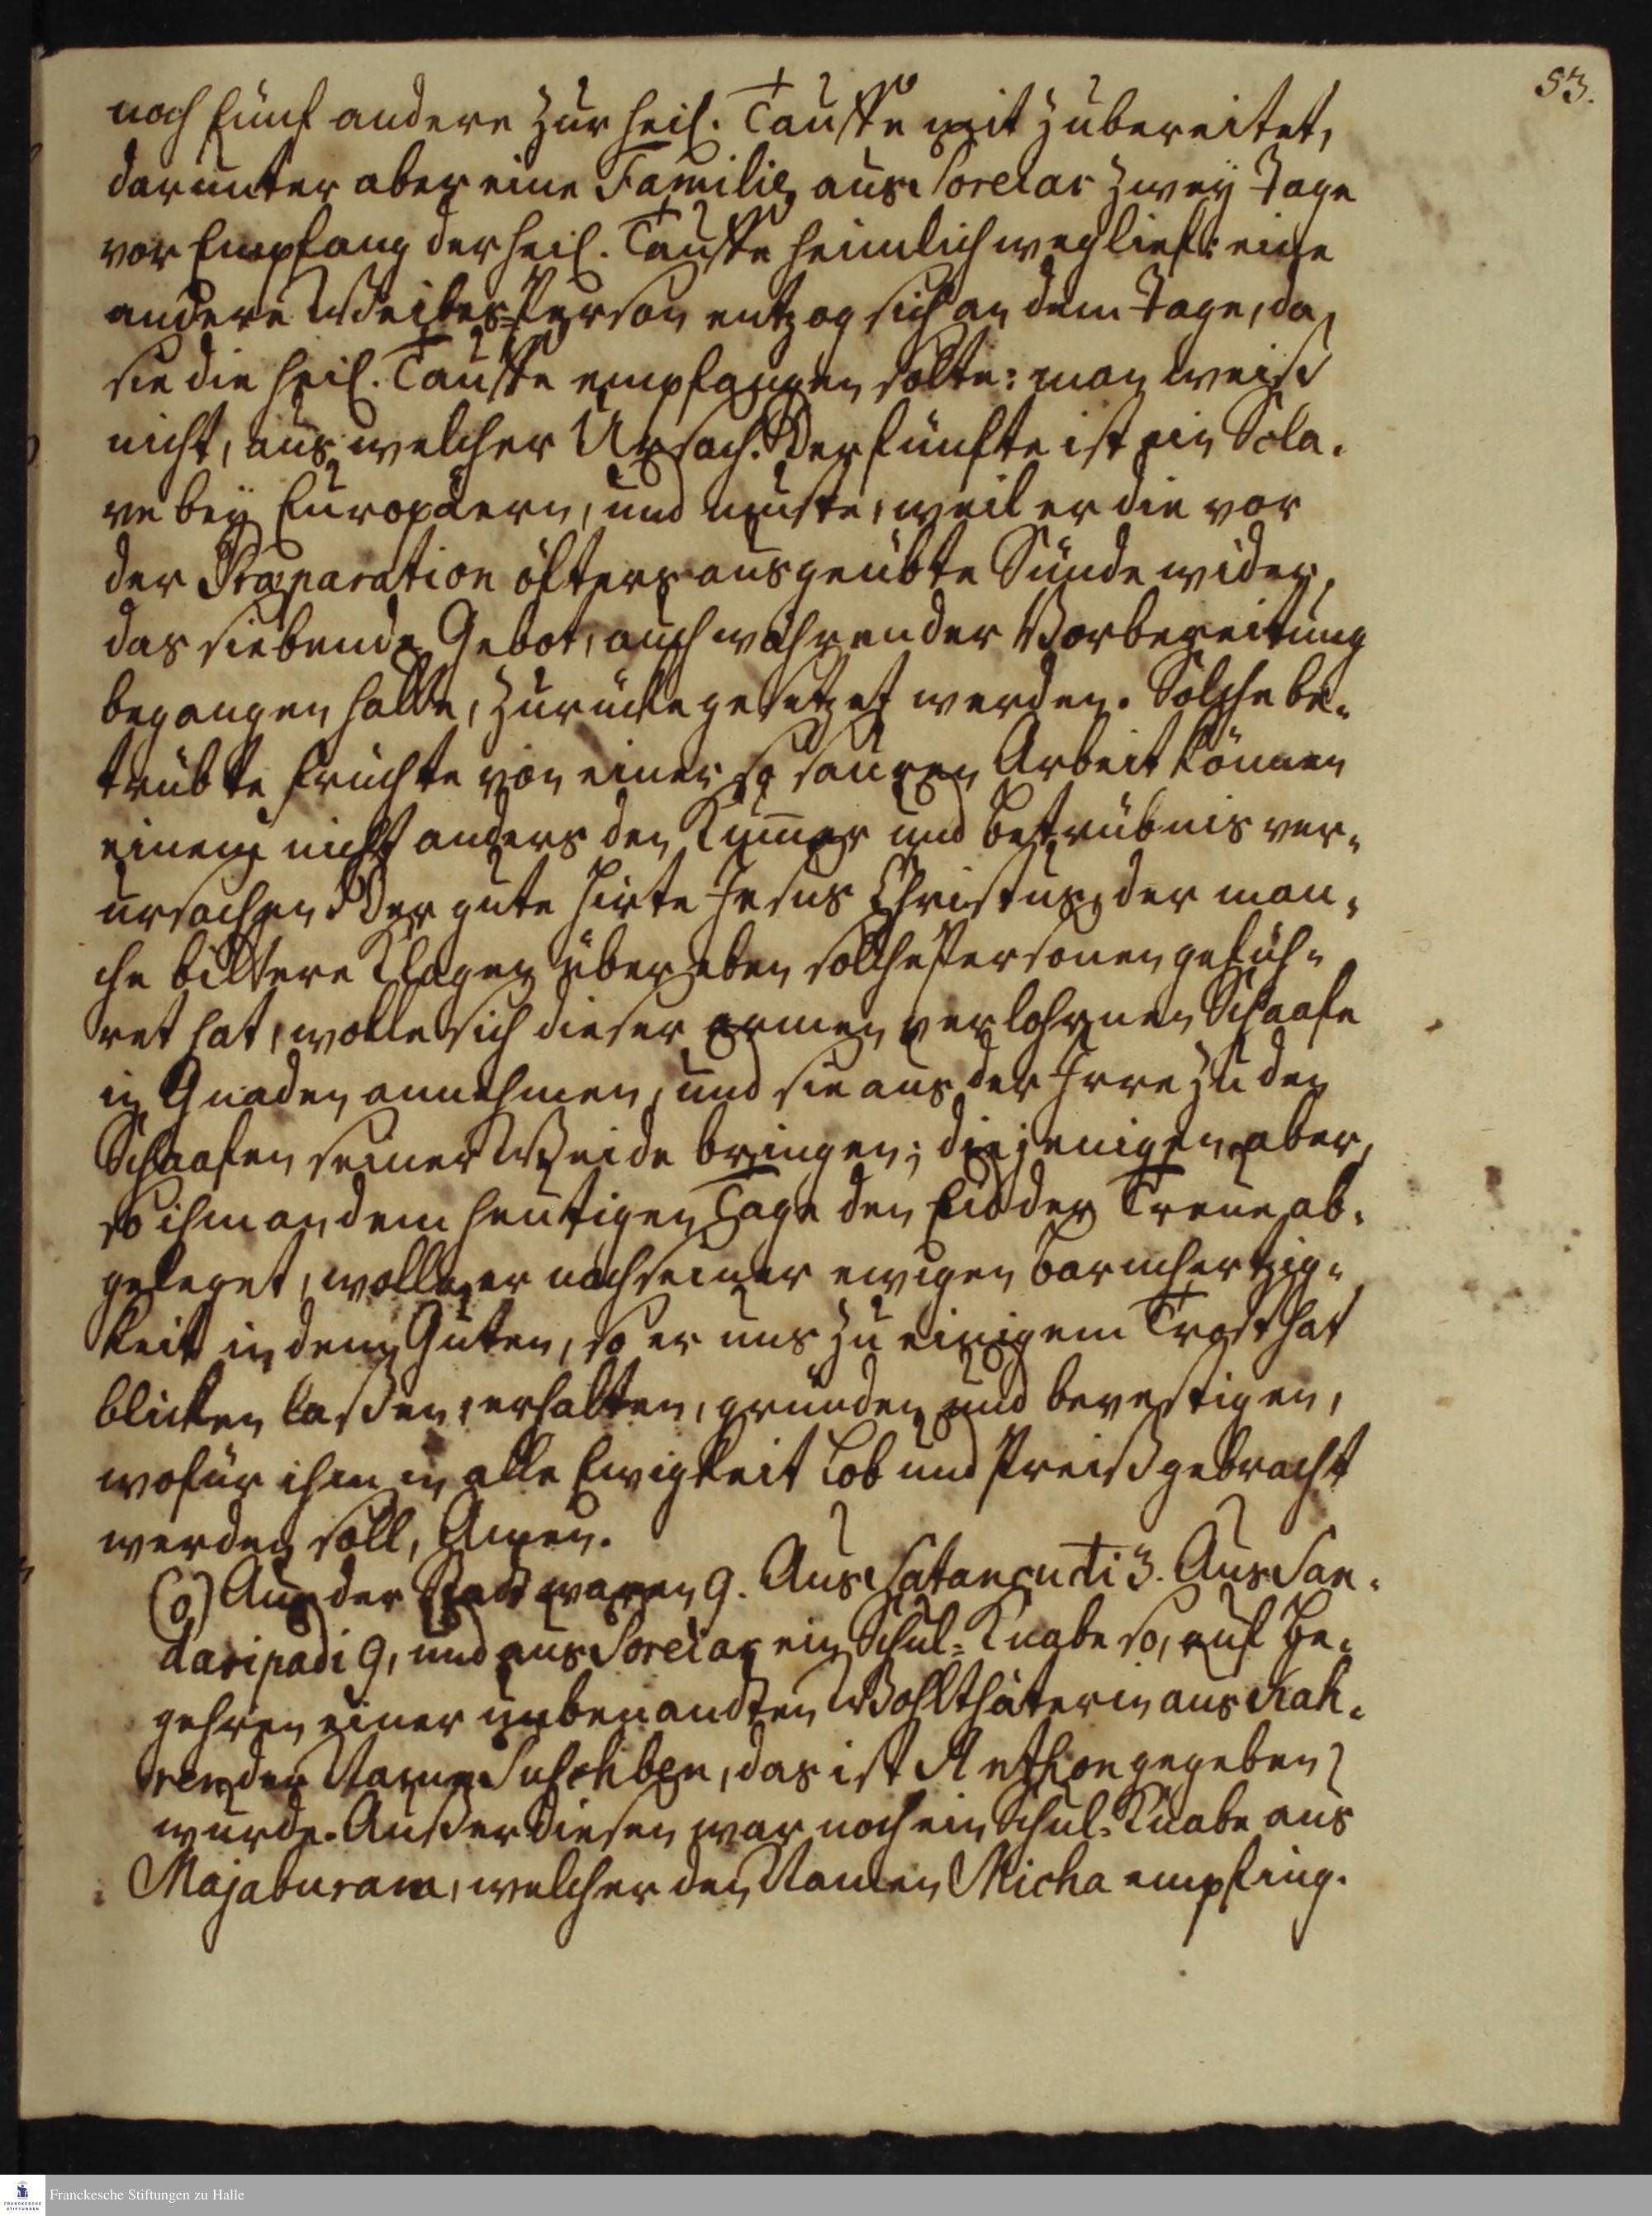 53.
noch fünf andere zur heil. Tauffe mit zubereitet,
darunter aber eine Familie aus Poreiar zwey Tage
vor Empfang der heil. Tauffe heimlich weglief: eine
andere Weibes-Person entzog sich an dem Tage, da
sie die heil. Tauffe empfangen solte: man weiß
nicht, aus welcher Ursach. Der fünfte ist ein Scla-
ve bey Europäern, und muste, weil er die vor
der Præparation öfters ausgeübte Sünde wider
das siebende Gebot, auch währender Vorbereitung
begangen hatte, zurücke gesetzet werden. Solche be-
trübte Früchte von einer so sauren Arbeit können
einem nicht anders den Kummer und Betrübnis ver-
ursachen. Der gute Hirte Jesus Christus, der man-
che bittere Klagen über eben solche Personen gefüh-
ret hat, wolle sich dieser armen verlohrnen Schaafe
in Gnaden annehmen, und sie aus der Irre zu den
Schaafen seiner Weide bringen; diejenigen aber,
so ihm an dem heutigen Tage den Eid der Treue ab-
geleget, wolle er nach seiner ewigen Barmhertzig-
keit in dem Guten, so er uns zu einigem Trost hat
blicken laßen, erhalten, gründen und bevestigen,
wofür ihm in alle Ewigkeit Lob und Preiß gebracht
werden soll, Amen.
(o) Aus der Stadt waren 9. Aus Satangudi 3. Aus San-
daripadi 9, und aus Poreiar ein Schul-Knabe so, auf Be-
gehren einer unbenandten Wohlthäterin aus
den Name, das ist Anthon gegeben
wurde. Außer diesen war noch ein Schul-Knabe aus
Majaburam, welcher den Namen Micha empfing.
Franckesche Stiftungen zu Halle